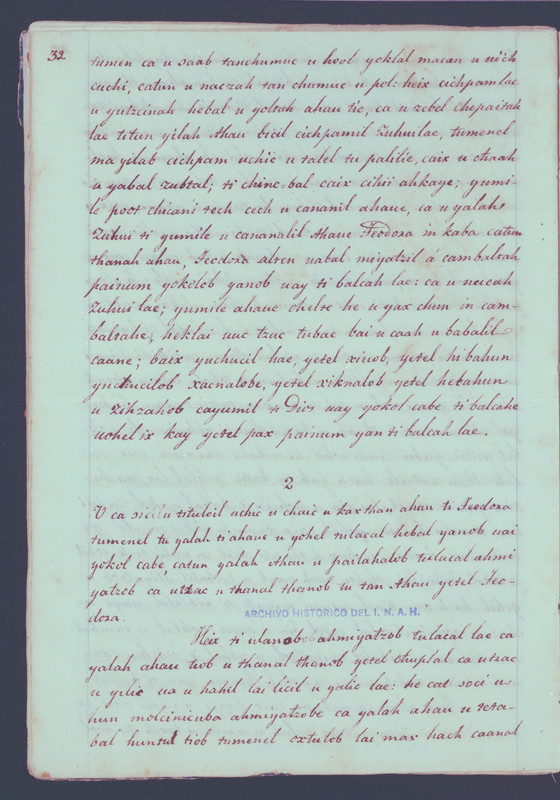 32
tumen ca u saab tanchumuc u hool yoklal macan u uich
cuchi, catun u naczah tan chumuc u pol: heix cichpamlae
u yutzcinah hebal u yoltah ahau tio, ca u zebel chepaitah
lae titun yilah Ahau bicil cichpamil Zuhuilae, tumenel
ma yilab cichpam uchic u talel tu palilie, caix u
u yabal zubtal; ti chinc-bal caix cihii ahkaye; yumi-
le poot chicani tech cech u cananil ahaue, ca u yalah
Zuhui ti yumile u cananalil Ahaue Teodora in kaba catun
thanah ahau, Teodora alten uabal miyatzil á cambaltah
painum yokolob yanob uay ti balcah lae: ca u nucah
Zuhui lae; yumile ahaue ohelte he u yax chun in cam-
baltahe, heklai uuc tzuc tubae bai u caah u babalil
caane; baix yuchucil hae, yetel xiuob, yetel hibahun
yuchucilob xacnalobe, yetel xiknalob yetel hebahun
u zihzahob cayumil ti Dios uay yokol cabe ti balcahe
uohel ix kay yetel pax painum yan ti balcah lae.
2
V ca u tituloil uchic u chaic u kaxthan ahau ti Teodora
tumenel tu yalah ti ahaue u yohel tulacal hebal yanob uai
yokol cabe, catun yalah Ahau u pailahalob tulacal ahmi
yatzob ca utzac u thanal thanob tu tan Ahau yetel Teo-
dora.
ARCHIVO HISTORICO DEL I. N. A. H.
Heix ti ulanob ahmiyatzob tulacal lae ca
yalah ahau tiob u thanal thanob yetel chuplal ca utzac
u yilic ua u hahil lai licil u yalic lae: he cat u
hun molcinicuba ahmiyatzobe ca yalah ahau u teta-
bal huntul tiob tumenel oxtulob lai max hach caanal